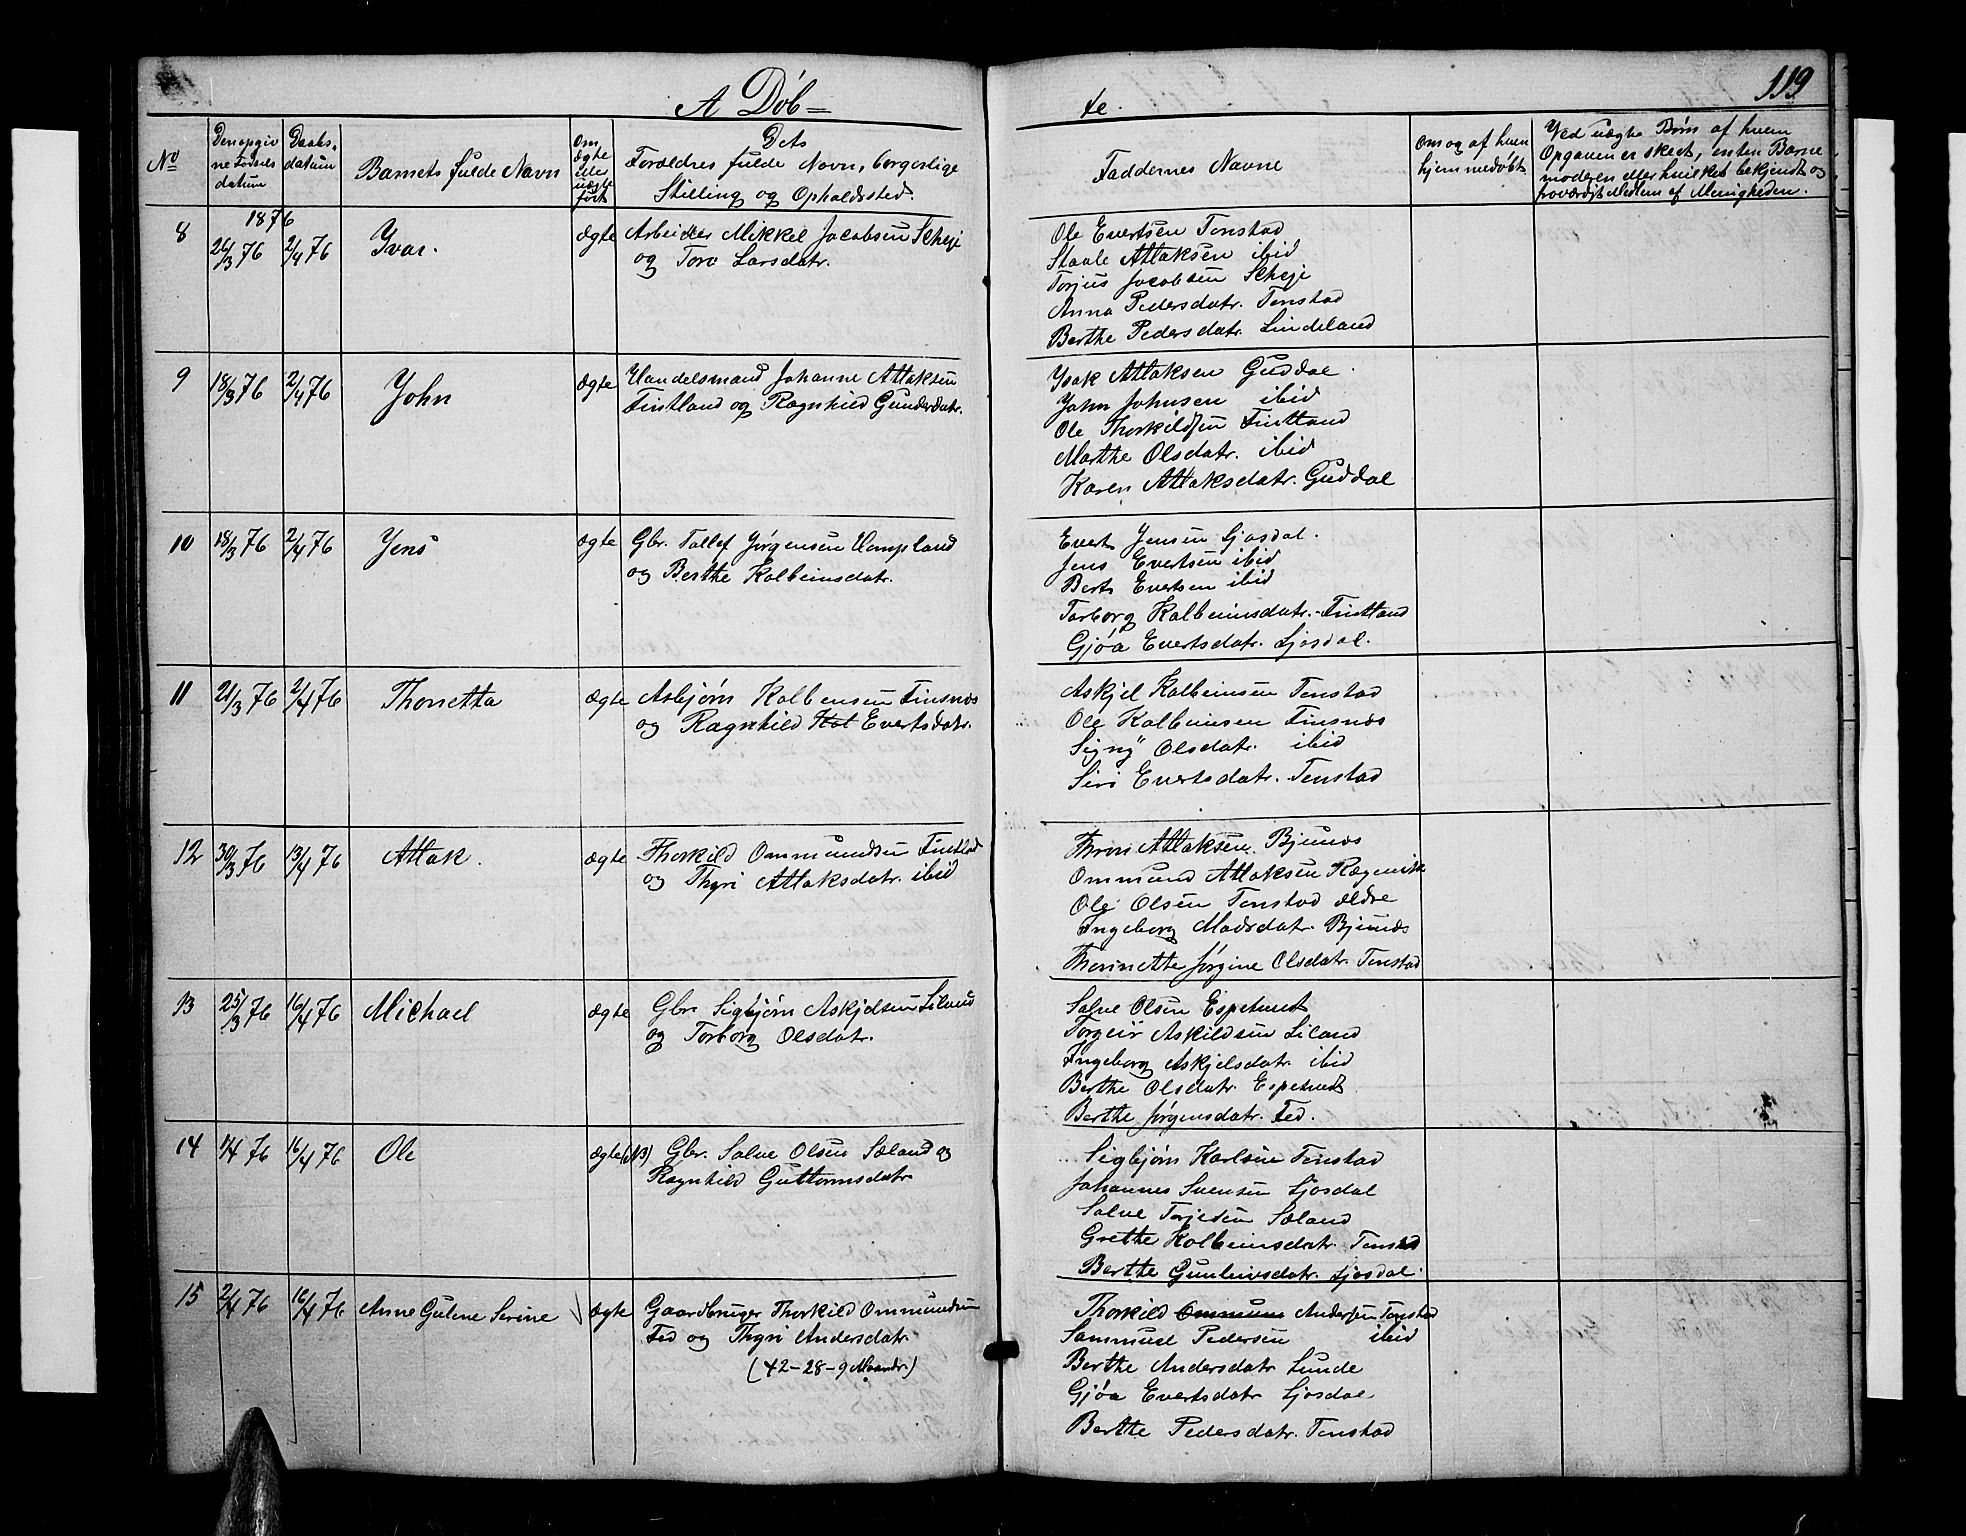 119
A Døb=
te.
No
Den opgiv
ne Fødsels
datum
Daabs-
datum
Barnets fulde Navn
Om
ægte
eller
uægte
født
Dets
Forældres fulde Navn, borgerlige
Stilling og Opholdssted.
Faddernes Navne
Om og af hvem
hjemmedøbt
Ved uægte Børn af hvem
Opgaven er skeet, enten Barne
moderen eller hvilket bekjendt og
troværdigt Medlem af Menigheden.
1876
8 26/3 76 2/4 76 Yvar. ægte Arbeider Mikkel Jacobsen Scheje
og Tore Larsdatr.
Ole Evertsen Tonstad
Staale Atlaksen ibid
Torjus Jacobsen Scheje
Anna Pedersdatr. Tonstad
Berthe Pedersdatr. Lindeland
9 18/3 76 2/4 76 John ægte Handelsmand Johanne Atlaksen
Fintland og Ragnhild Gundersdatr.
Ysak Atlaksen Guddal.
John Johnsen ibid
Ole Thorkildsen Fintland
Marthe Olsdatr. ibid
Karen Atlaksdatr. Guddal
10 18/3 76 2/4 76 Jens ægte Gbr. Tollef Jørgensen Hompland
og Berthe Kolbeinsdatr.
Evert Jensen Ljosdal.
Jens Evertsen ibid
Bert Evertsen ibid
Torborg Kolbeinsdatr. Fintland
Gjøa Evertsdatr. Ljosdal.
11 21/3 76 2/4 76 Thonetta ægte Asbjørn Kolbensen Finsnæs
og Ragnhild Kol Evertsdatr.
Askjel Kolbeinsen Tonstad
Ole Kolbeinsen Finsnæs
Signÿ Olsdatr. ibid
Siri Evertsdatr. Tonstad
12 30/3 76 13/4 76 Atlak. ægte Thorkild Ommundsen Fintland
og Thyri Atlaksdatr. ibid
Thron Atlaksen Bjunæs
Ommund Atlaksen Rægevik
Ole Olsen Tonstad ældre
Ingeborg Madsdatr. Bjunæs
Thorinette Jørgine Olsdatr. Tonstad
13 25/3 76 16/4 76 Michael ægte Gbr. Sigbjørn Askjelsen Liland
og Torborg Olsdatr.
Salve Olsen Espetvedt
Torgeir Askildsen Liland
Ingeborg Askjelsdatr. ibid
Berthe Olsdatr. Espetvedt
Berthe Jørgensdatr. Fed.
14 1/4 76 16/4 76 Ole ægte (N3) Gbr. Salve Olsen Sæland og
Ragnhild Guttormsdatr
Sigbjørn Karlsen Tonstad
Johannes Svensen Ljosdal
Salve Torjesen Sæland
Grethe Kolbeinsdatr. Tonstad
Berthe Gunleivsdatr. Ljosdal.
15 2/4 76 16/4 76 Anne Gulene Serine ægte Gaardbruger Thorkild Ommundsen
Fed og Thyri Andersdatr.
(42-28-9 Maander)
Thorkild Ommun Andersen Tonstad
Sammuel Pedersen ibid
Berthe Andersdatr Lunde
Gjøa Evertsdatr Ljosdal
Berthe Pedersdatr. Tonstad